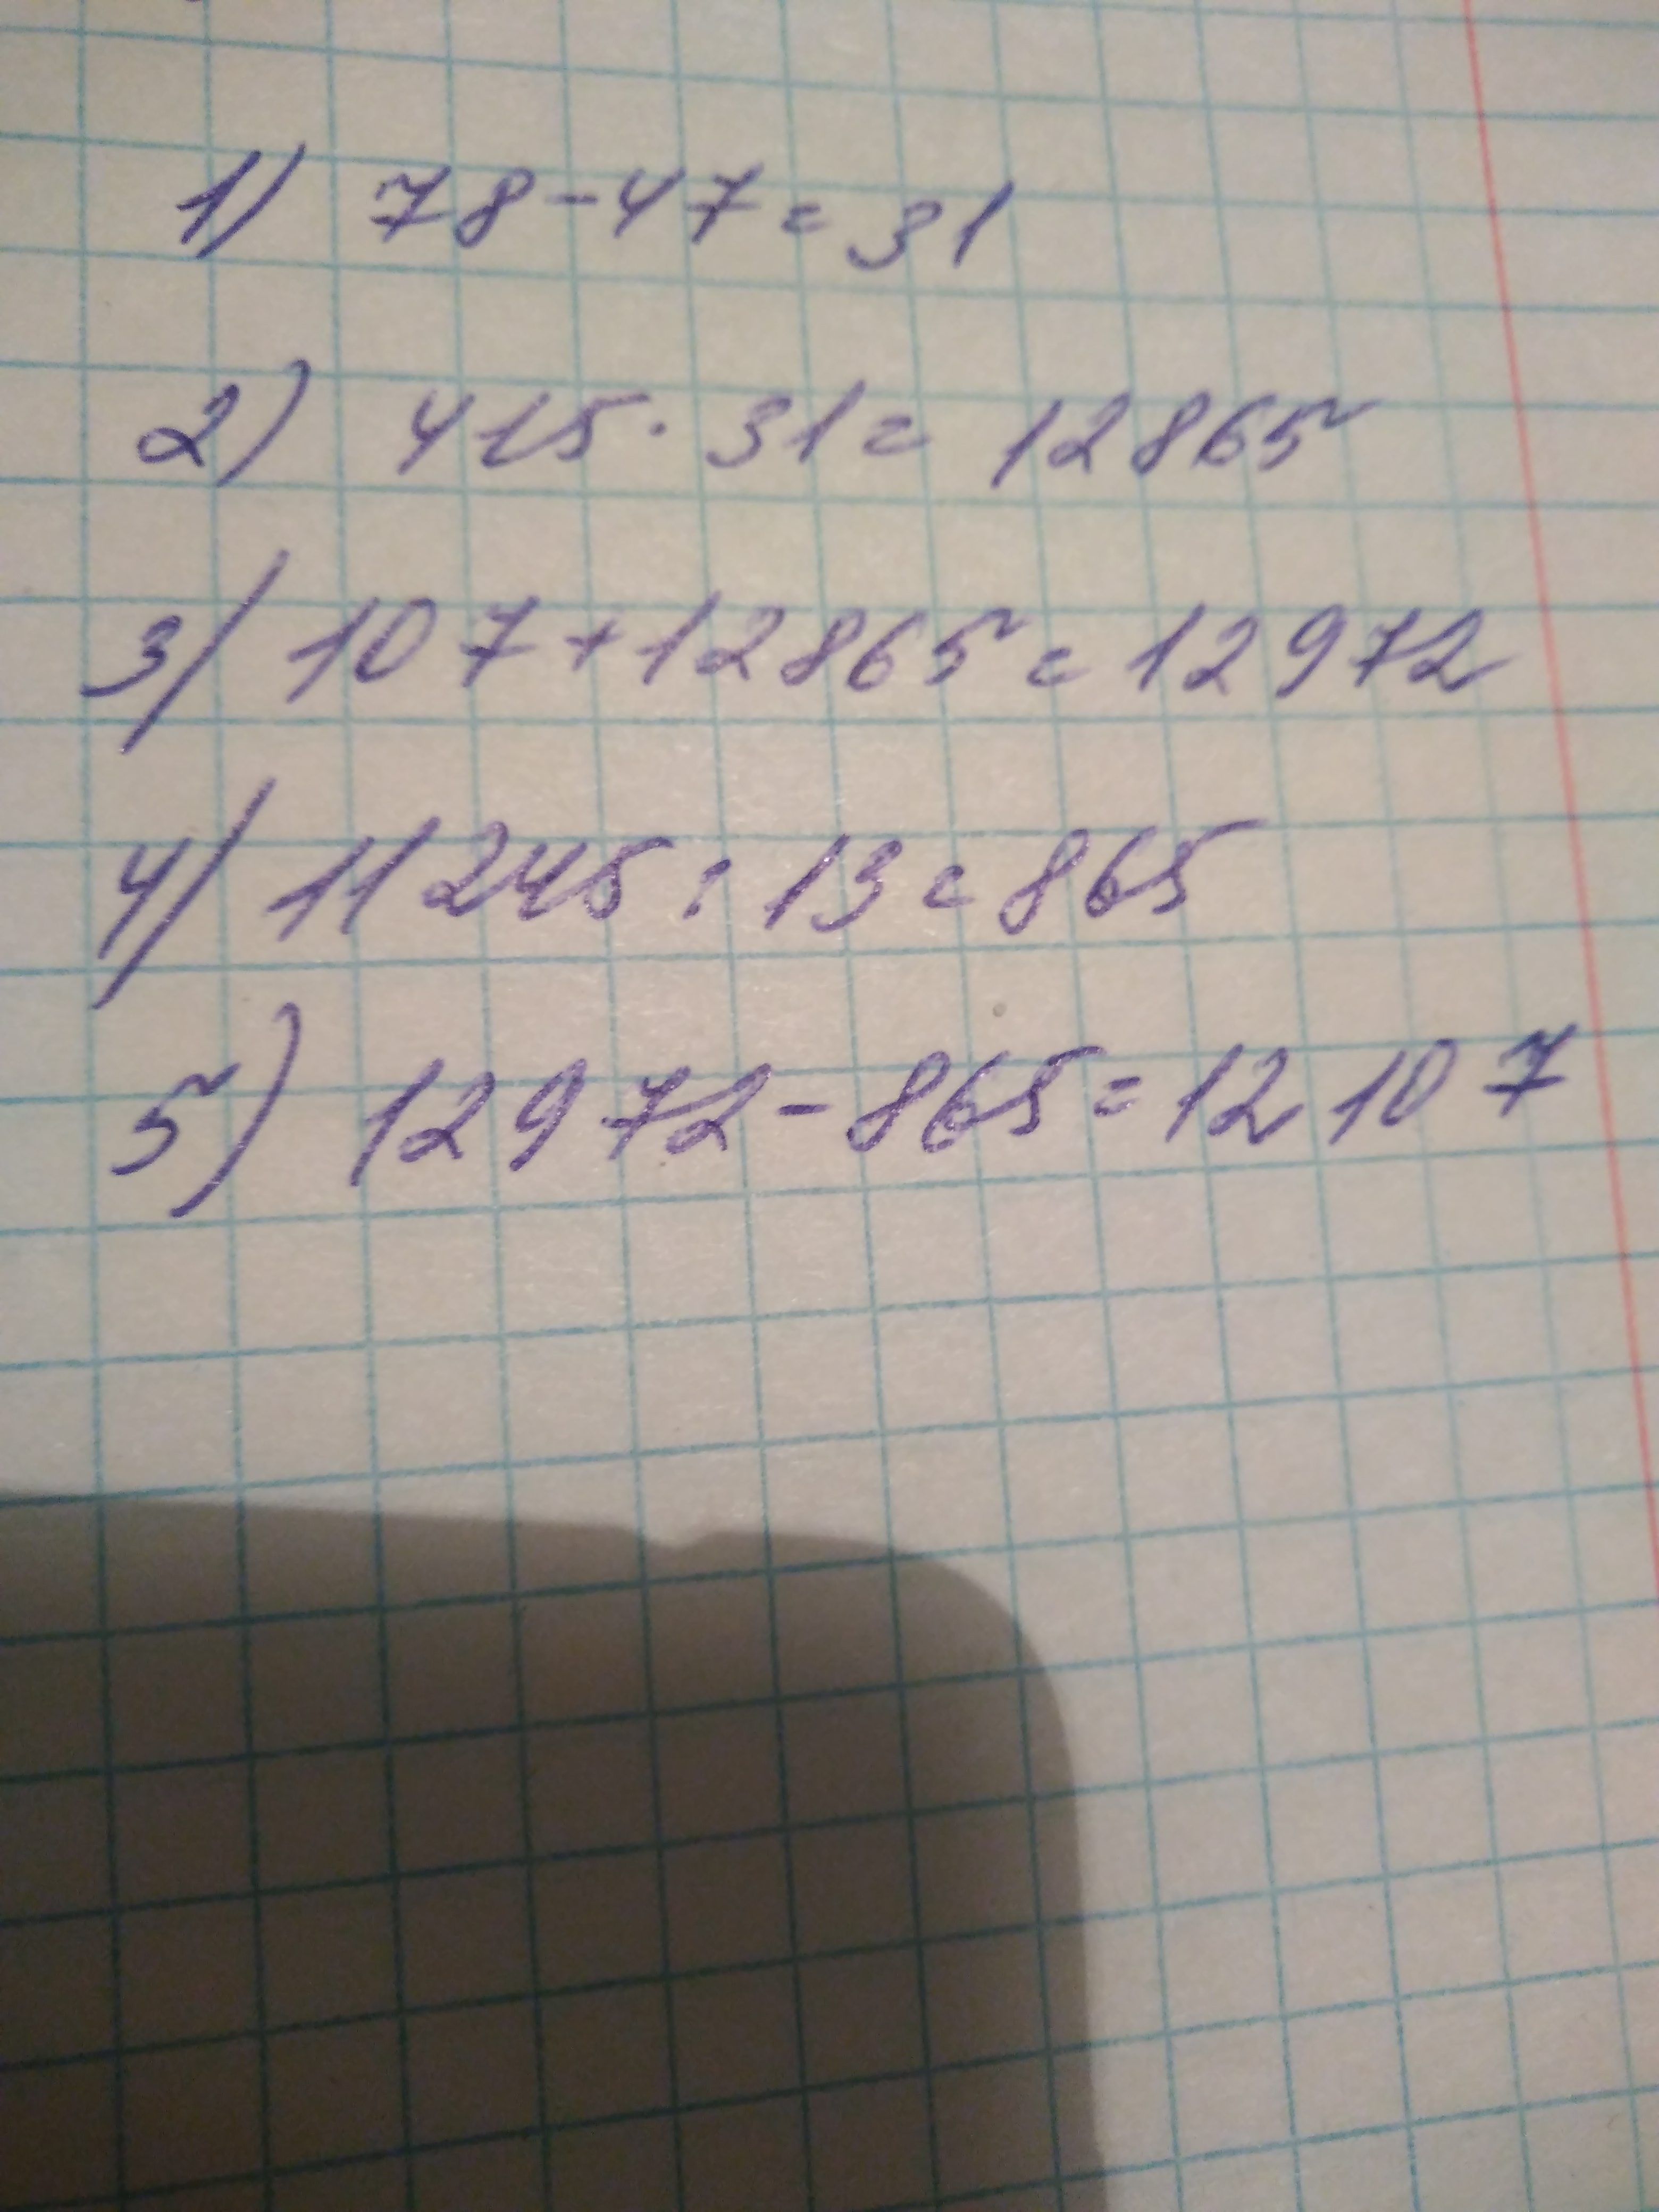 1) 78-47=31
2) 415·31=12865
3) 107+12865=12972
4) 11245:13=865
5) 12972-865=12107